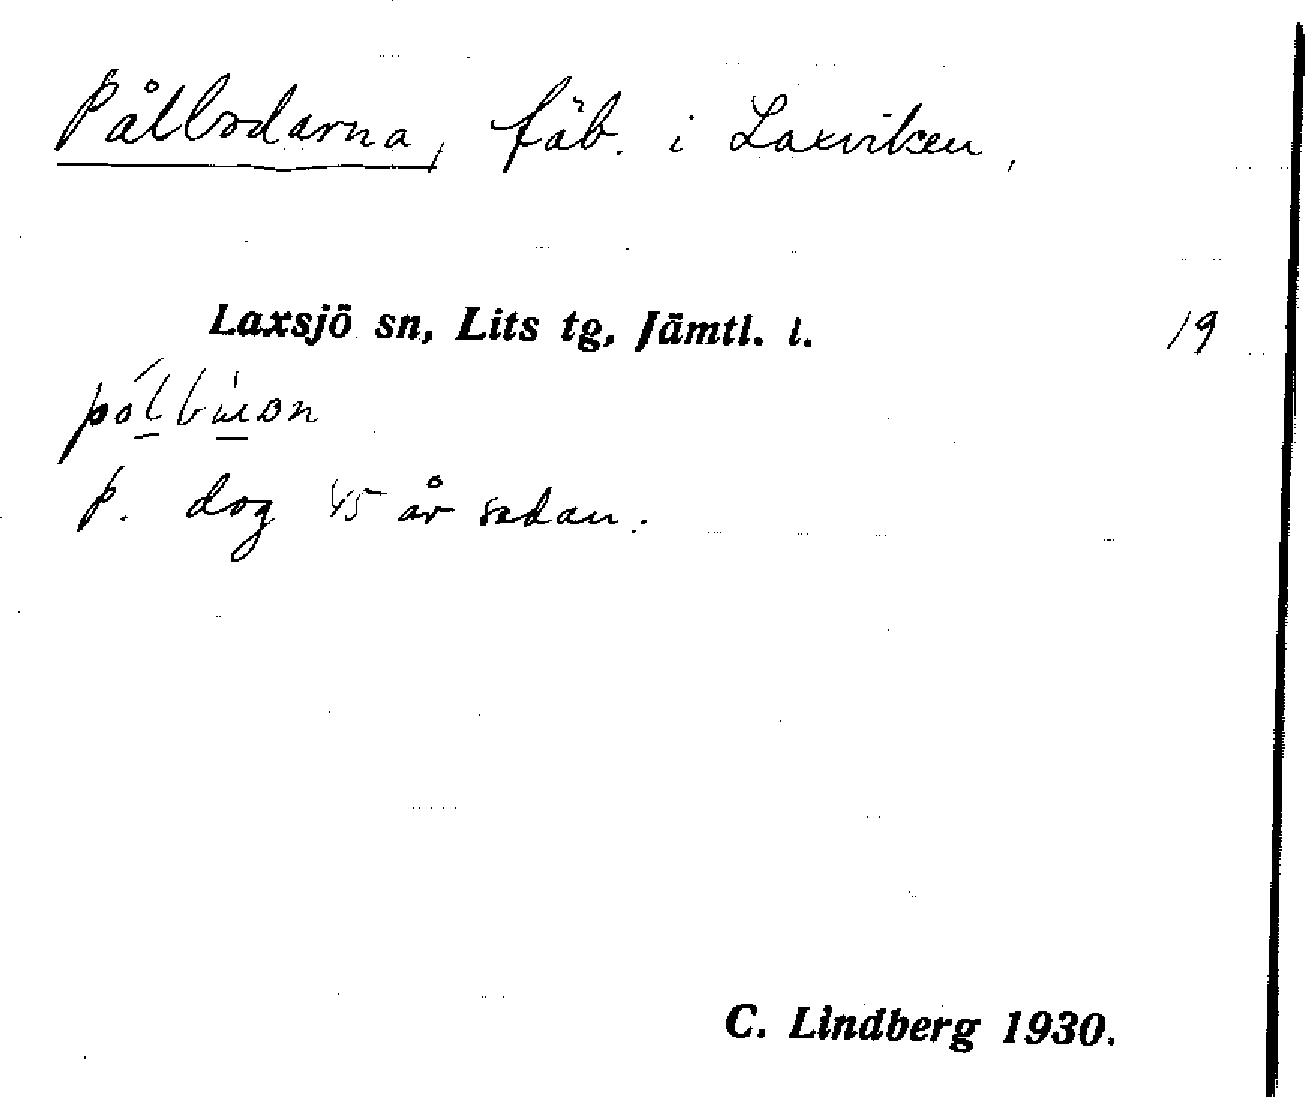 Pålbodarna, fäb. i Laxviken,
Laxsjö sn, Lits tg, Jämtl. l. 19
P. dog 45 år sedan.
C. Lindberg 1930.